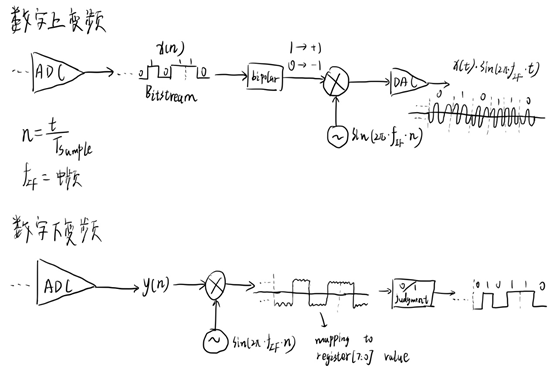 数字上变频
ADC
x(n)
0 1 0 1 1 0
Bitstream
bipolar
1 → +1
0 → -1
DAC
x(t)·sin(2π·f_IF·t)
0 1 0 1 1 0
sin(2π·f_IF·n)
n = t/T_sample
f_IF = 中频
数字下变频
ADC
y(n)
sin(2π·f_IF·n)
mapping to
register[7:0] value
0 1
Judgment
0 1 0 1 1 0